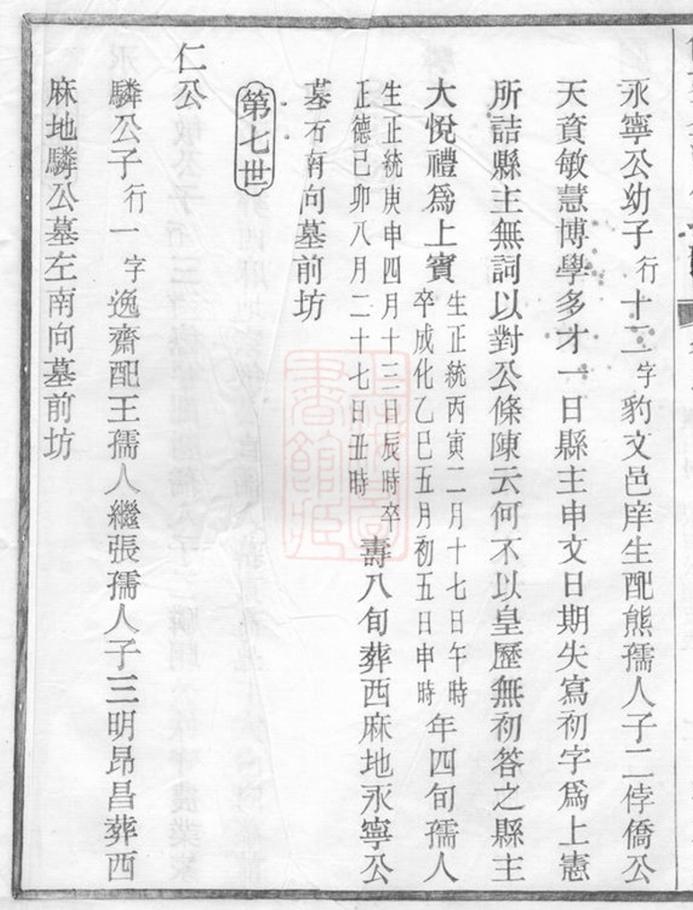 永寧公幼子行十二字豹文邑庠生配熊孺人子二侼僑公
天資敏慧博學多才一日縣主申文日期失寫初字為上憲
所詰縣主無詞以對公條陳云何不以皇歷無初答之縣主
大悅禮為上賓生正統丙寅二月十七日午時卒成化乙巳五月初五日申時年四旬孺人
生正統庚申四月十三日辰時卒正德己卯八月二十七日丑時壽八旬葬西麻地永寧公
墓右南向墓前坊
第七世
仁公
麟公子行一字逸齋配王孺人繼張孺人子三明昂昌葬西
麻地麟公墓左南向墓前坊